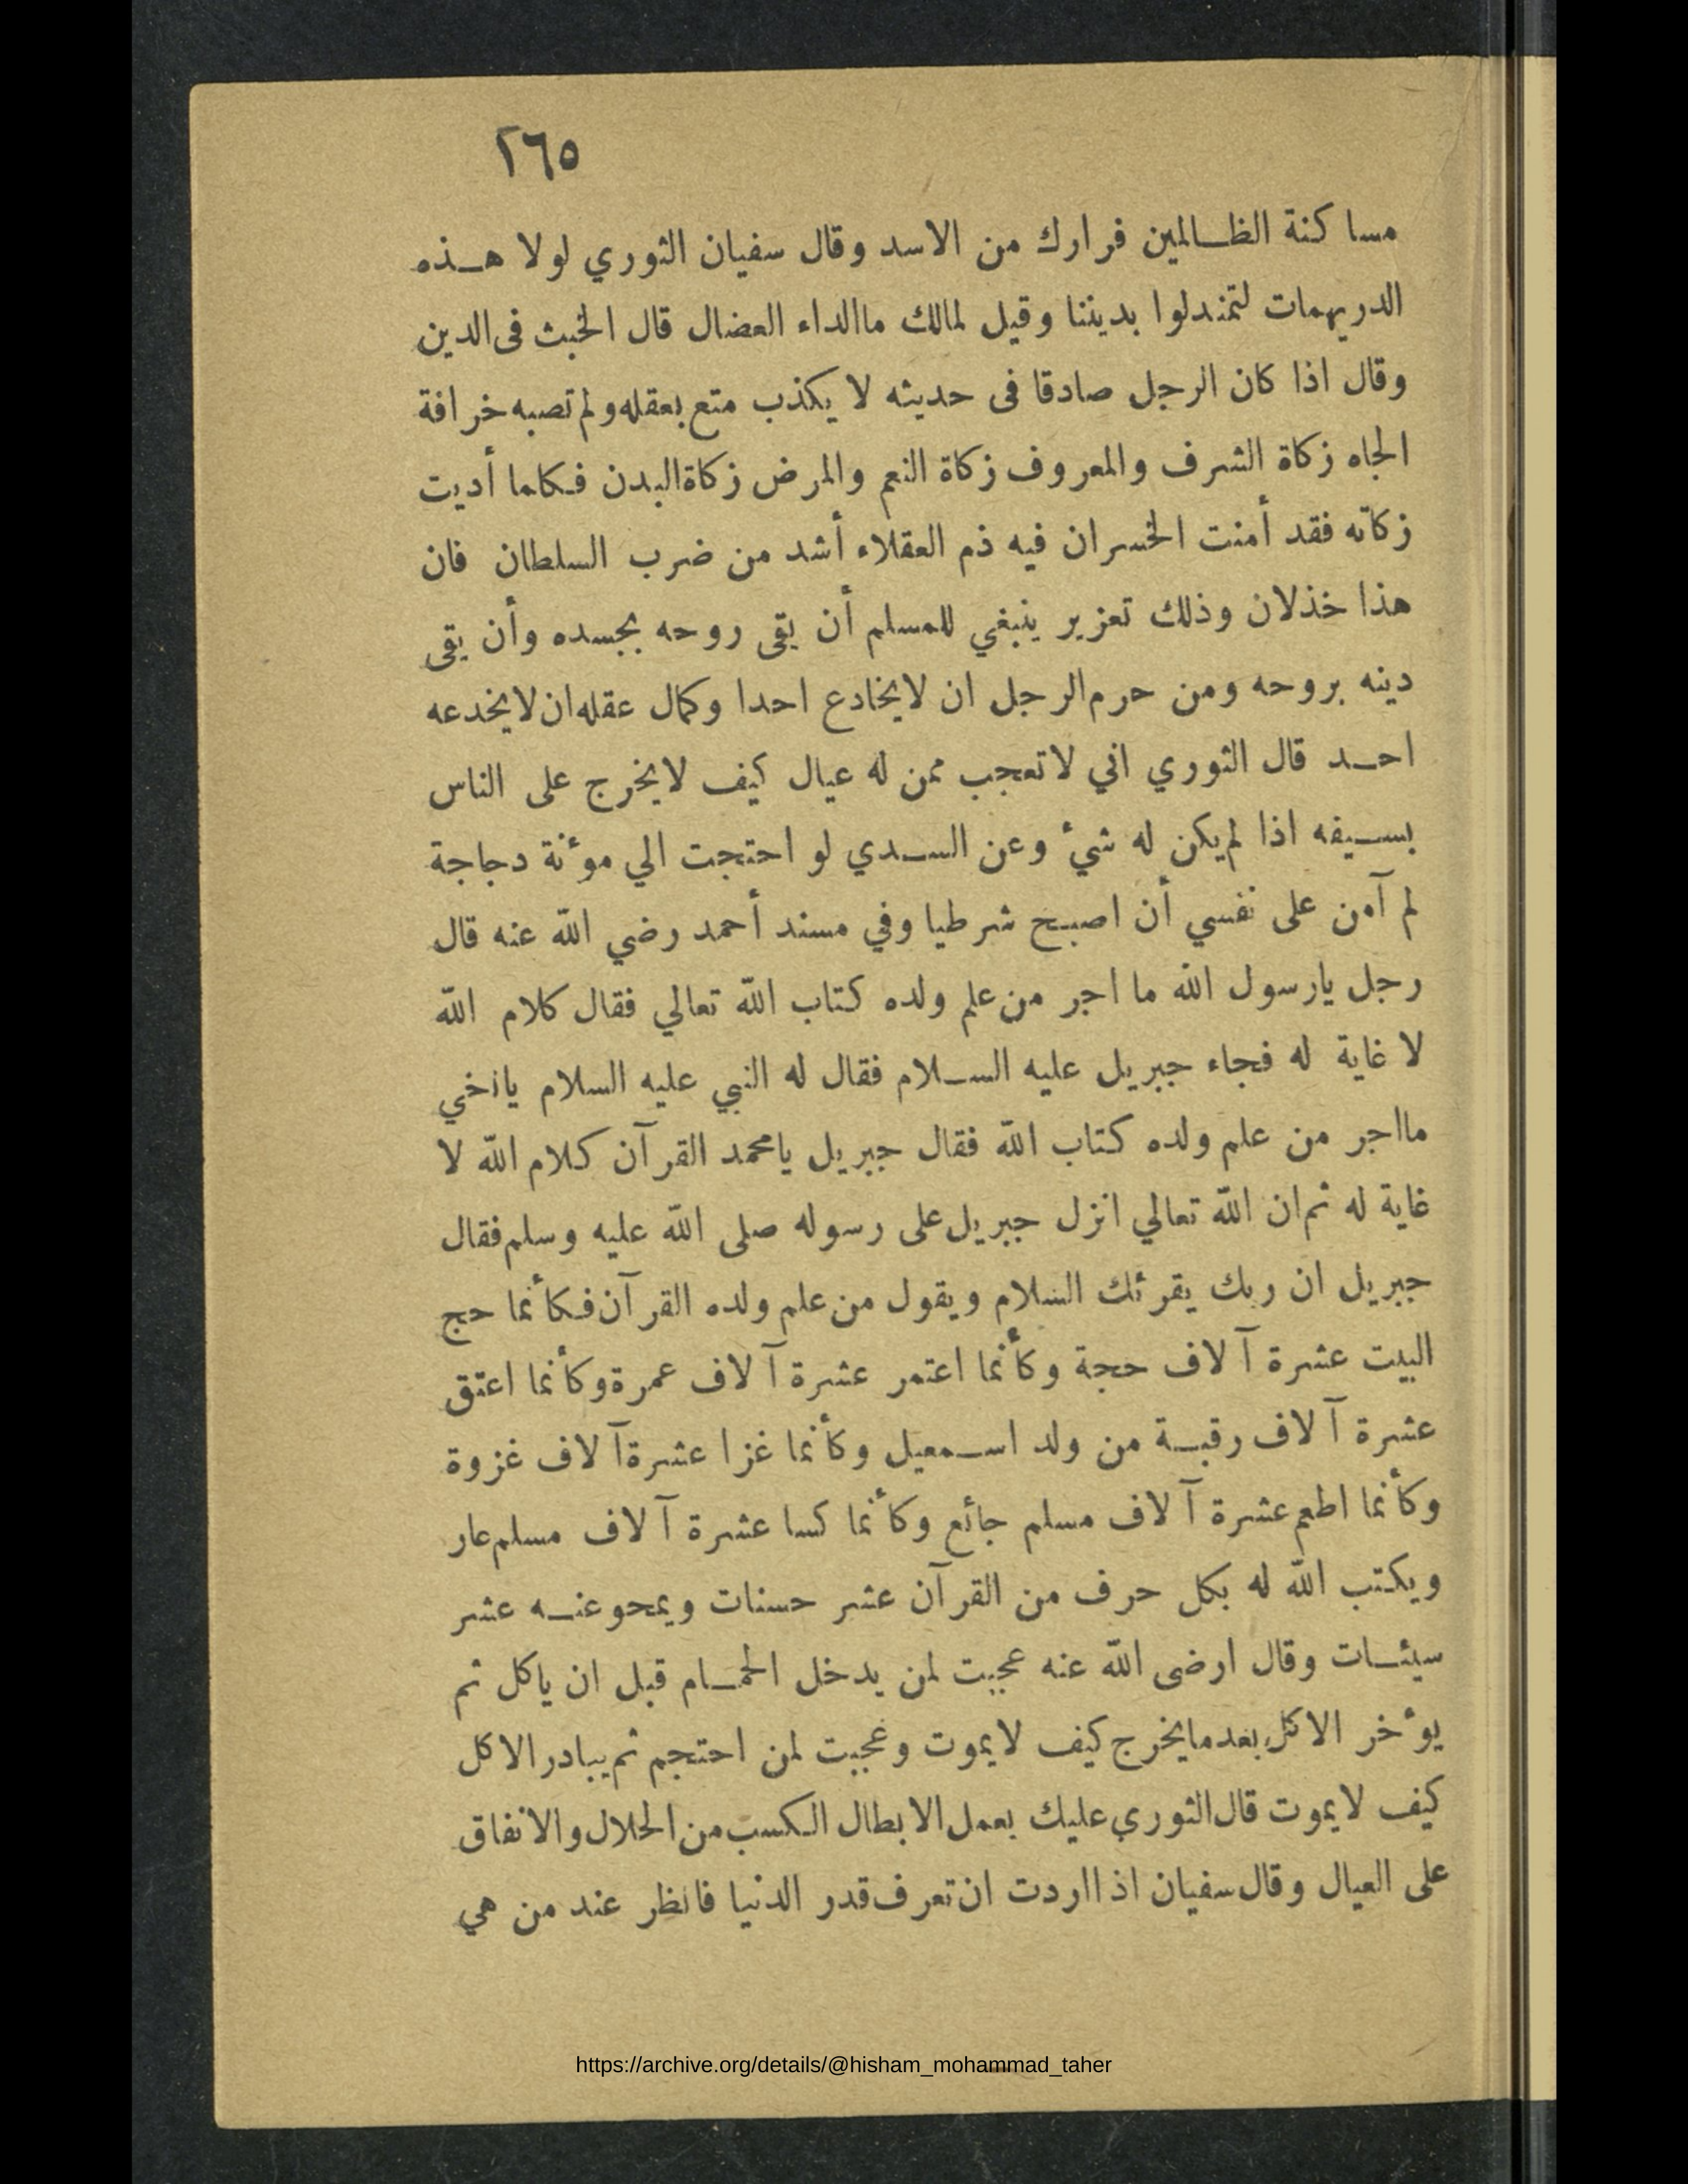 ٢٦٥
مساكنة الظالمين فرارك من الاسد وقال سفيان الثوري لولا هذه
الدريهمات لتمندلوا بديننا وقيل لمالك ماالداء العضال قال الخبث فى الدين
وقال اذا كان الرجل صادقا فى حديثه لا يكذب متع بعقله ولم تصبه خرافة
الجاه زكاة الشرف والمعروف زكاة النعم والمرض زكاة البدن فكلما أديت
زكاته فقد أمنت الخسران فيه ذم العقلاء أشد من ضرب السلطان فان
هذا خذلان وذلك تعزير ينبغي للمسلم أن يقى روحه بجسده وأن يقى
دينه بروحه ومن حرم الرجل ان لايخادع احدا وكمال عقله ان لايخدعه
احد قال الثوري اني لاتعجب ممن له عيال كيف لايخرج على الناس
بسيفه اذا لم يكن له شئ وعن السدي لو احتجت الي موٴنة دجاجة
لم آمن على نفسي أن اصبح شرطيا وفي مسند أحمد رضي الله عنه قال
رجل يارسول الله ما اجر من علم ولده كتاب الله تعالي فقال كلام الله
لا غاية له فجاء جبريل عليه السلام فقال له النبي عليه السلام ياأخي
مااجر من علم ولده كتاب الله فقال جبريل يامحمد القرآن كلام الله لا
غاية له ثم ان الله تعالي انزل جبريل على رسوله صلى الله عليه وسلم فقال
جبريل ان ربك يقرئك السلام ويقول من علم ولده القرآن فكأنما حج
البيت عشرة آلاف حجة وكأنما اعتمر عشرة آلاف عمرة وكأنما اعتق
عشرة آلاف رقبة من ولد اسمعيل وكأنما غزا عشرة آلاف غزوة
وكأنما اطعم عشرة آلاف مسلم جائع وكأنما كسا عشرة آلاف مسلم عار
ويكتب الله له بكل حرف من القرآن عشر حسنات ويمحو عنه عشر
سيئات وقال ارضى الله عنه عجبت لمن يدخل الحمام قبل ان ياكل ثم
يوٴخر الاكل بعد مايخرج كيف لايموت وعجبت لمن احتجم ثم يبادر الاكل
كيف لايموت قال الثوري عليك بعمل الابطال الكسب من الحلال والانفاق
على العيال وقال سفيان اذااردت ان تعرف قدر الدنيا فانظر عند من هي
https://archive.org/details/@hisham_mohammad_taher